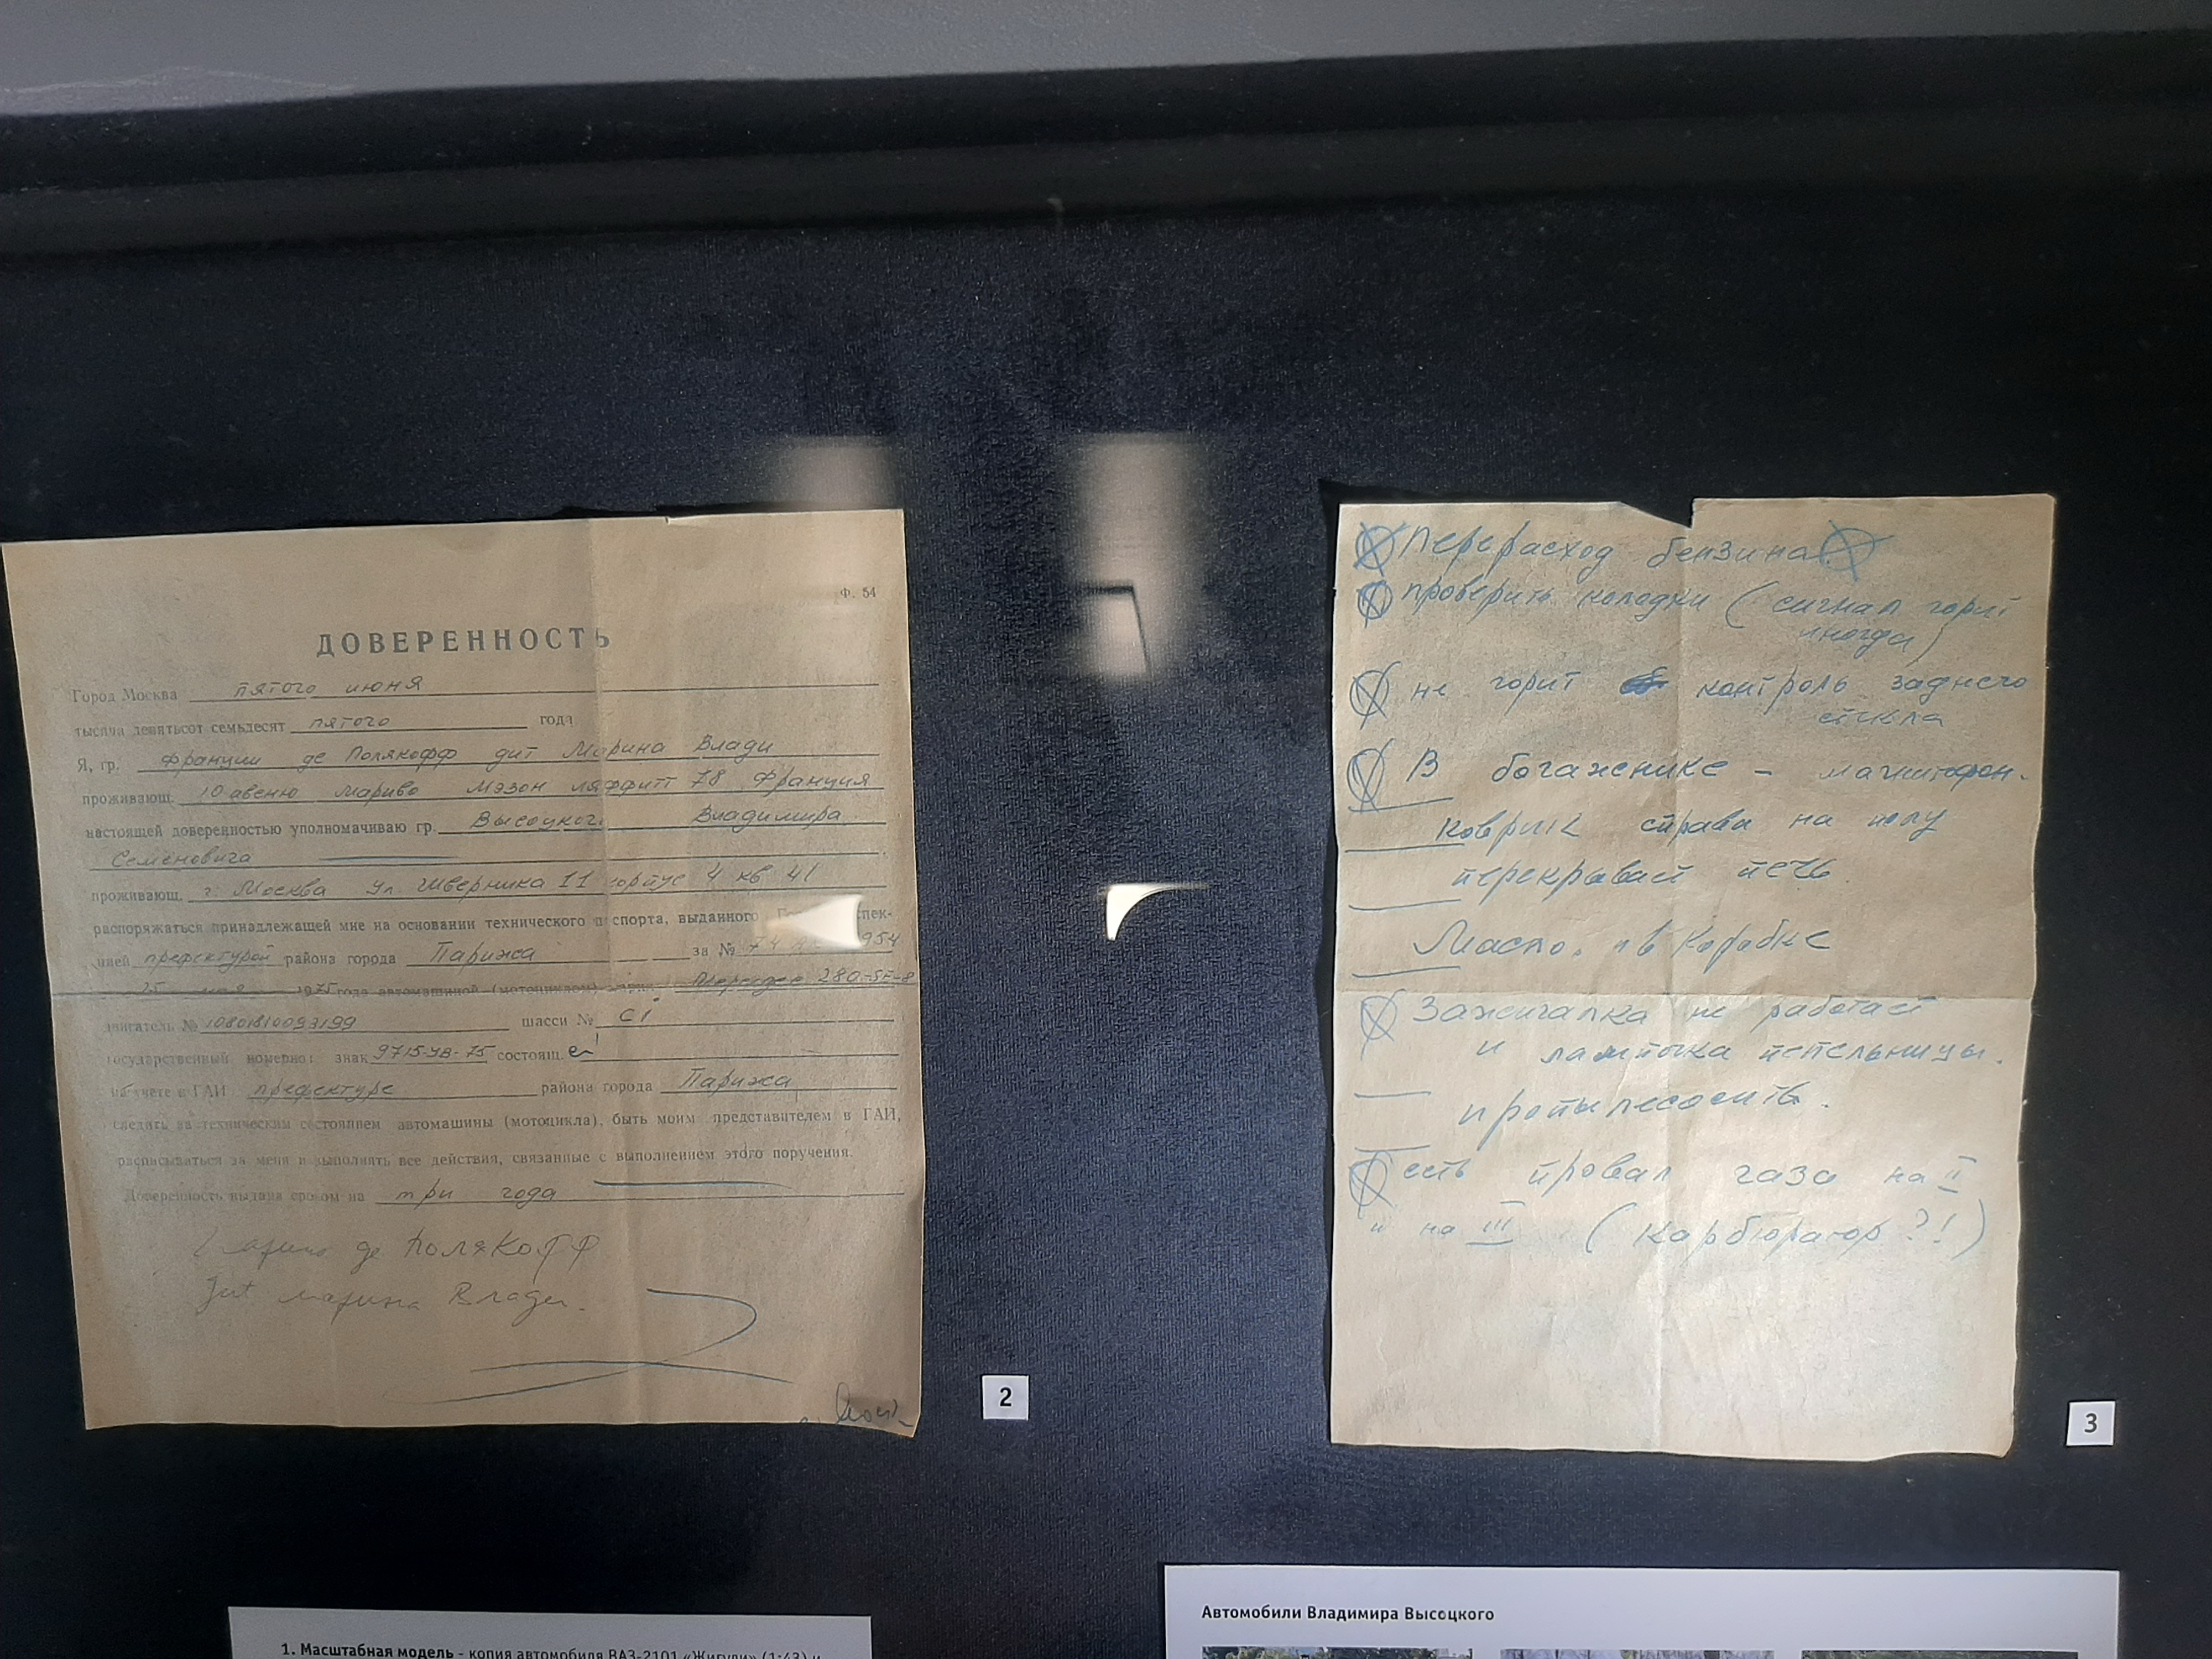 Ф. 54
ДОВЕРЕННОСТЬ
Город Москва пятого июня
тысяча девятьсот семьдесят пятого года
Я, гр. Франции де Полякофф дит Марина Влади
проживающ. 10 авеню Мариво Мэзон Ляффитт 78 Франция
настоящей доверенностью уполномачиваю гр. Высоцкого Владимира
Семеновича
проживающ. г. Москва ул. Шверника 11 корпус 4 кв 41
распоряжаться принадлежащей мне на основании технического паспорта, выданного
цией префектурой района города Парижа за № 74
1975 года автомашиной (мотоциклом) 280-SE-8
двигатель № 10801810093199 шасси №
государственный номерной знак 9715-УВ-75 состоящ.
на учете в ГАИ префектуре района города Парижа
следить за техническим состоянием автомашины (мотоцикла), быть моим представителем в ГАИ,
расписываться за меня и выполнять все действия, связанные с выполнением этого поручения.
Доверенность выдана сроком на три года
Марина де Полякофф
dit Марина Влади.
2
Перерасход бензина
проверить колодки (сигнал горит
иногда)
не горит контроль заднего
стекла
В богаженике – магнитофон.
Коврик справа на полу
перекрывает печь.
Масло. в коробке
Зажигалка не работает
и лампочка пепельницы.
пропылесосить.
есть провал газа на II
и на III (Карбюратор?!)
3
1. Масштабная модель - копия автомобиля ВАЗ-2101 «Жигули» (1:43) и
Автомобили Владимира Высоцкого